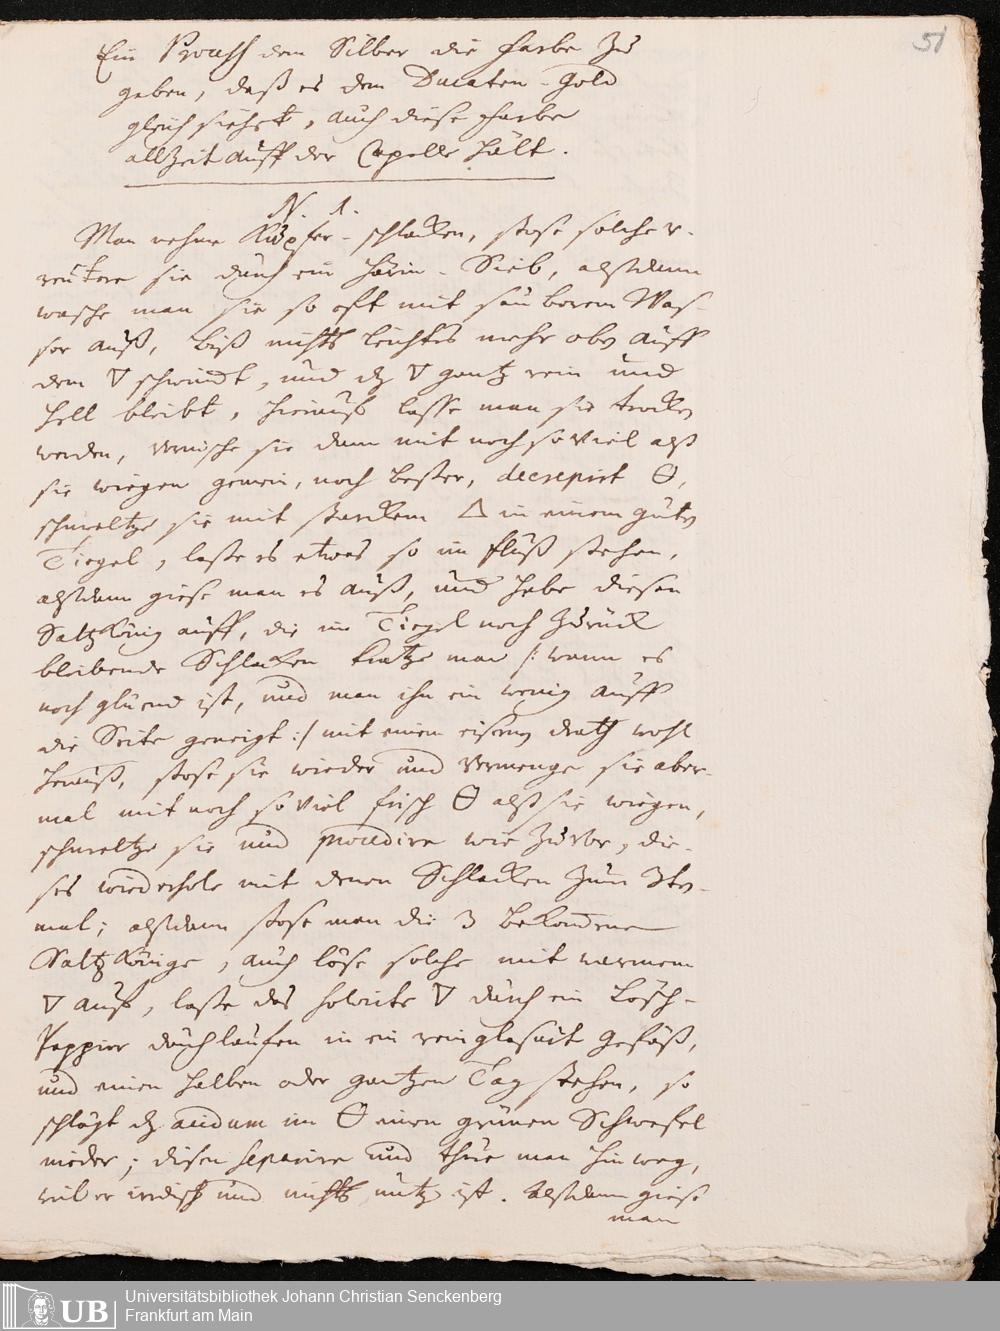 51
Ein Process dem Silber die Farbe zu
geben, daß es dem Ducaten-Gold
gleich siehet, auch diese Farbe
allzeit auff der Capelle hält.
N. 1.
Man nehme Kupfer-schlacken, stose solche u.
reutere sie durch ein härin-Sieb, alßdann
wasche man sie so oft mit sauberem Was-
ser auß, biß nichts leichtes mehr oben auff
dem 🜄 schwimt, und dz 🜄 gantz rein und
hell bleibt, hierauß lasse man sie trocken
werden, vermische sie dann mit noch so viel alß
sie wiegen gemein, noch besser, decrepirt 🜔,
schmeltze sie mit starckem 🜂 in einem guten
Tiegel, lasse es etwas so im Fluß stehen,
alßdann giese man es auß, und hebe diesen
Saltz König auff, die im Tiegel noch zurück
bleibende Schlacken kratze man /: wann es
noch gluend ist, und man ihn ein wenig auff
die Seite geneigt :/ mit einem eisern drath wohl
herauß, stose sie wieder und vermenge sie aber-
mal mit noch so viel frisch 🜔 alß sie wiegen,
schmeltze sie und procedire wie zuvor, die-
ses wiederhole mit denen Schlacken zum 3ten-
mal; alßdann stose man die 3 bekommene
Saltz Könige, auch löse solche mit warmem
🜄 auf, lasse das solvirte 🜄 durch ein Lösch-
Pappier durchlaufen in ein rein glasurt Gefäß,
und einen halben oder gantzen Tag stehen, so
schlägt dz acidum im 🜔 einen grünen Schwefel
nieder; diesen separire und thue man hinweg,
weil er irrdisch und nichts nutz ist. Alßdann giese
man
Universitätsbibliothek Johann Christian Senckenberg
Frankfurt am Main
UB